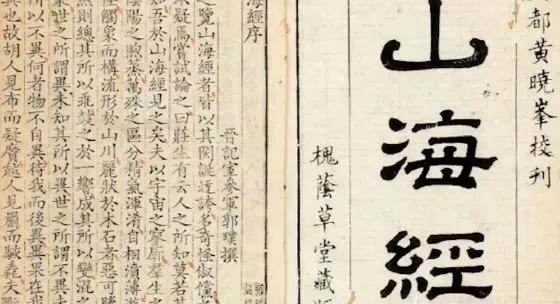 都黄曉峯挍刊
山海經
槐蔭草堂藏
海經序
晉記室參軍郭璞撰
之覽山海經者皆以其閎誕迂誇多奇怪俶儻
疑焉嘗試論之曰莊生有云人之所知莫若其
吾於山海經見之矣夫以宇宙之寥廓羣生之
陰陽之煦蒸萬殊之區分精氣渾淆自相濆薄
怪觸象而構流形於山川麗狀於木石者惡可勝
然則總其所以乖鼓之於一響成其所以變混之
象世之所謂異未知其所以異世之所謂不異未
所以不異何者物不自異待我而後異異果在我
異也故胡人見布而疑黂越人見罽而駭毳夫